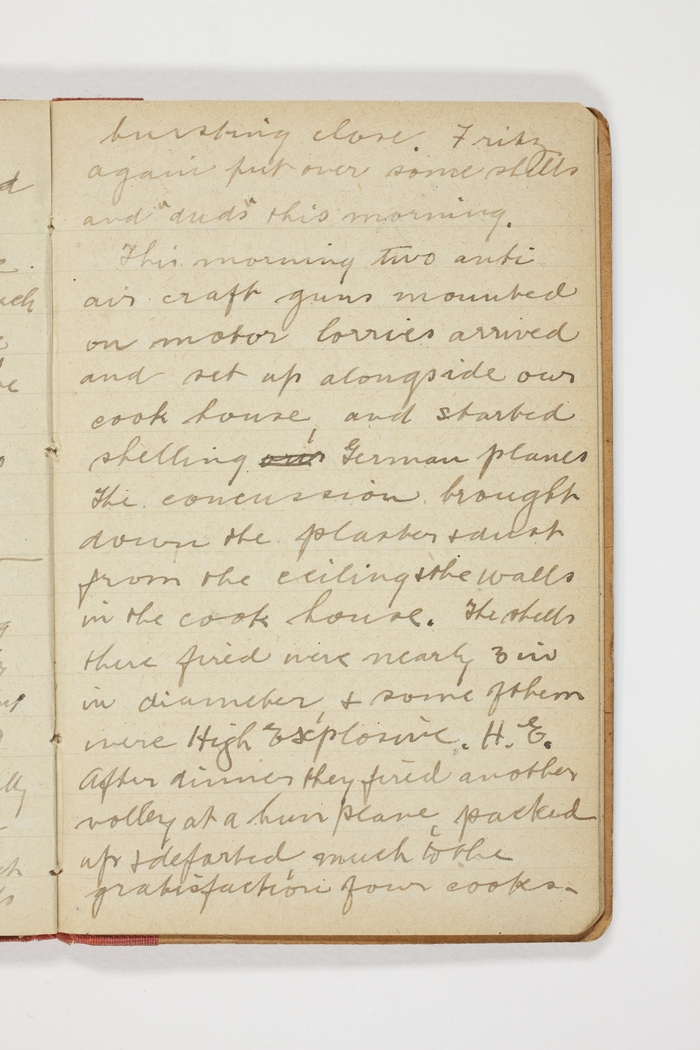 bursting close. Fritz
again put over some shells
and "duds" this morning.
This morning two anti
air craft guns mounted
on motor lorries arrived
and set up alongside our
cook house, and started
shelling German planes
The concussion brought
down the plaster & dust
from the ceiling & the walls
in the cook house. The shells
there fired were nearly 3 in
in diameter, & some of them
were High Explosive. H.E.
After dinner they fired another
volley at a hun plane, packed
up & departed much to the
gratisfaction of our cooks-